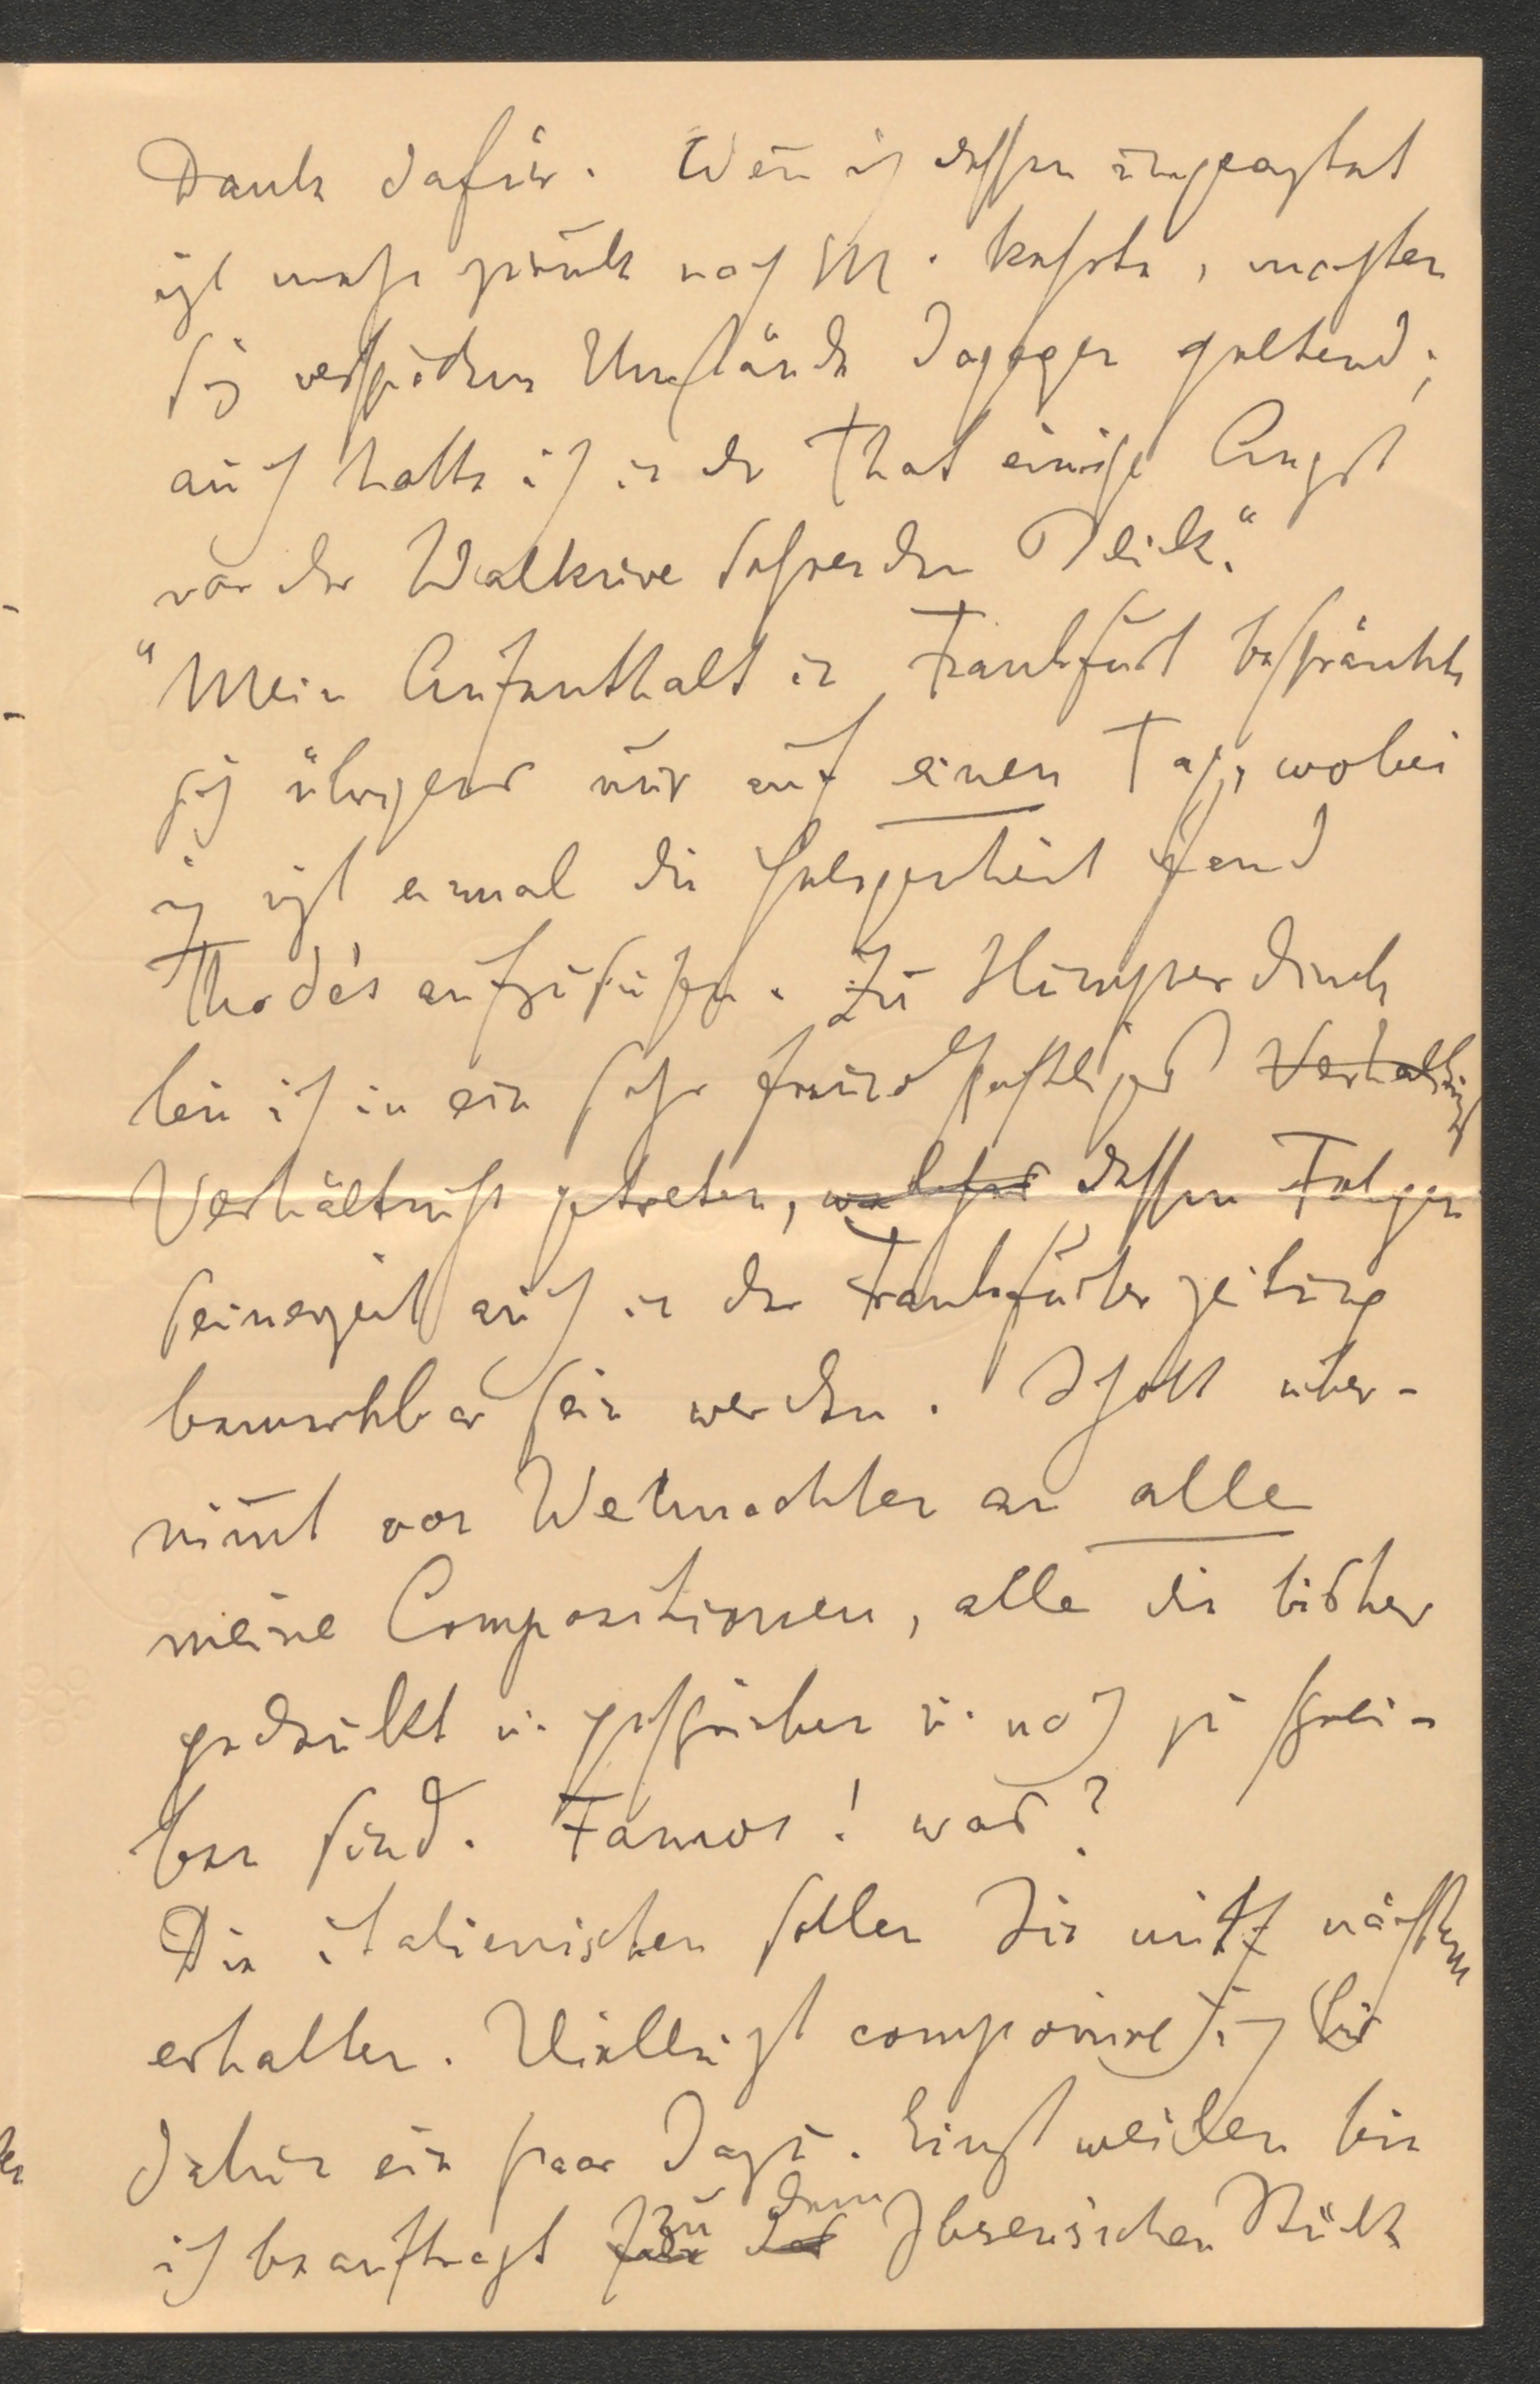 Dank dafür. Wen̄ ich dessen ungeachtet
nicht mehr zurück nach M. kehrte, machten
sich verschiedene Umstände dagegen geltend;
auch hatte ich in der That einige Angst
vor der Walküre sehrenden Blick."
"Mein Aufenthalt in Frankfurt beschränkte
sich übrigens nur auf einen Tag, wobei
ich nicht einmal die Gelegenheit fand
Thode's aufzusuchen. Zu Humperdinck
bin ich in ein sehr freundschaftliches Verhältniß
Verhältniß getreten, welches dessen Folgen
seinerzeit auch in der Frankfurter Zeitung
bemerkbar sein werden. Schott über-
nim̄t von Weihnachten an alle
meine Compositionen, alle die bisher
gedruckt u. geschrieben u. noch zu schrei-
ben sind. Famos! was?
Die italienischen sollen Sie mit nächstem
erhalten. Vielleicht componire ich bis
dahin ein paar dazu. Einstweilen bin
ich beauftragt zu dem Ibsenischen Stück